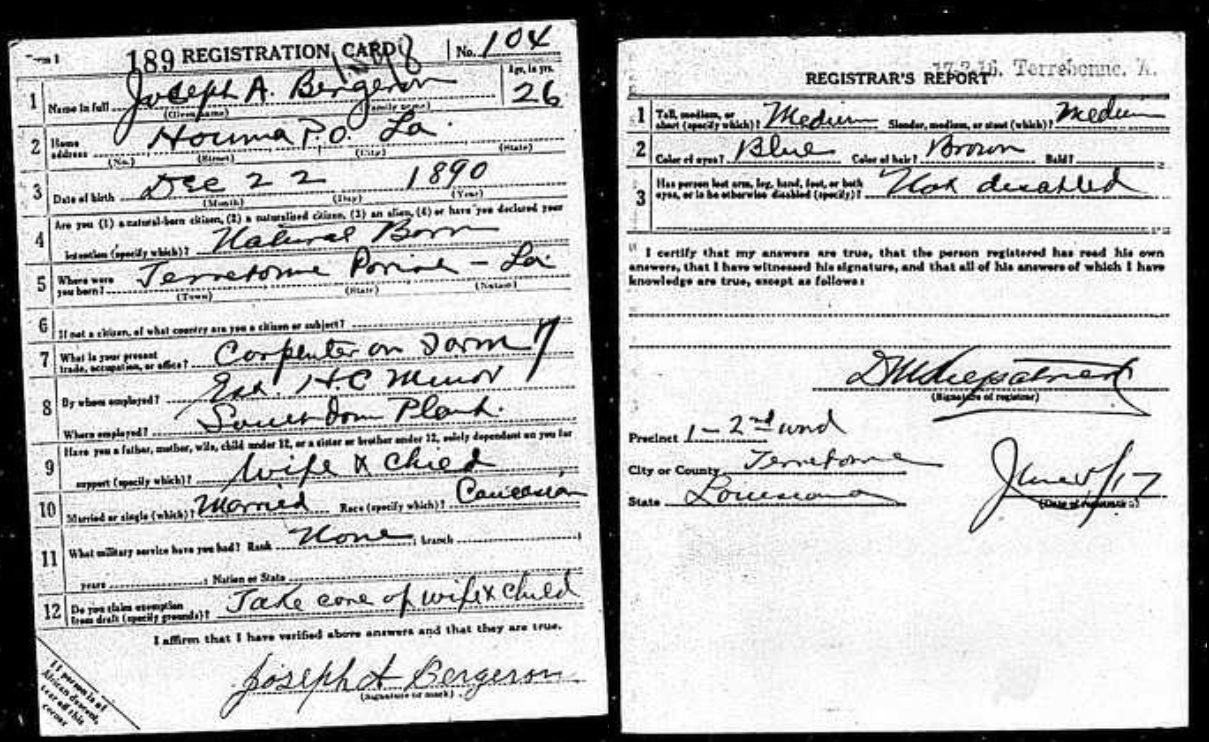 189 REGISTRATION CARD No. 104
1 Name in full Joseph A. Bergeron Age, in yrs. 26
(Given name) (Family name)
2 Home address Houma P.O. La.
(No.) (Street) (City) (State)
3 Date of birth Dec 22 1890
(Month) (Day) (Year)
Are you (1) a natural-born citizen, (2) a naturalized citizen, (3) an alien, (4) or have you declared your
4 intention (specify which)? Natural Born
5 Where were you born? Terrebonne Parish - La.
(Town) (State) (Nation)
6 If not a citizen, of what country are you a citizen or subject?
7 What is your present trade, occupation, or office? Carpenter on Farm 7
8 By whom employed? Est. H C Minor
Where employed? Southdown Plant.
Have you a father, mother, wife, child under 12, or a sister or brother under 12, solely dependent on you for
9 support (specify which)? Wife & Child
10 Married or single (which)? Married Race (specify which)? Caucasian
11 What military service have you had? Rank None ; branch ;
years ; Nation or State
12 Do you claim exemption from draft (specify grounds)? Take care of wife & child
I affirm that I have verified above answers and that they are true.
Joseph A Bergeron
(Signature or mark)
If person is of
African descent,
tear off this
corner
17-2-16. Terrebonne. A.
REGISTRAR'S REPORT
1 Tall, medium, or short (specify which)? Medium Slender, medium, or stout (which)? Medium
2 Color of eyes? Blue Color of hair? Brown Bald?
3 Has person lost arm, leg, hand, foot, or both eyes, or is he otherwise disabled (specify)? Not disabled
I certify that my answers are true, that the person registered has read his own
answers, that I have witnessed his signature, and that all of his answers of which I have
knowledge are true, except as follows:
(Signature of registrar)
Precinct 1 - 2nd wrd
City or County Terrebonne
State Louisiana
June 5/17
(Date of registration)